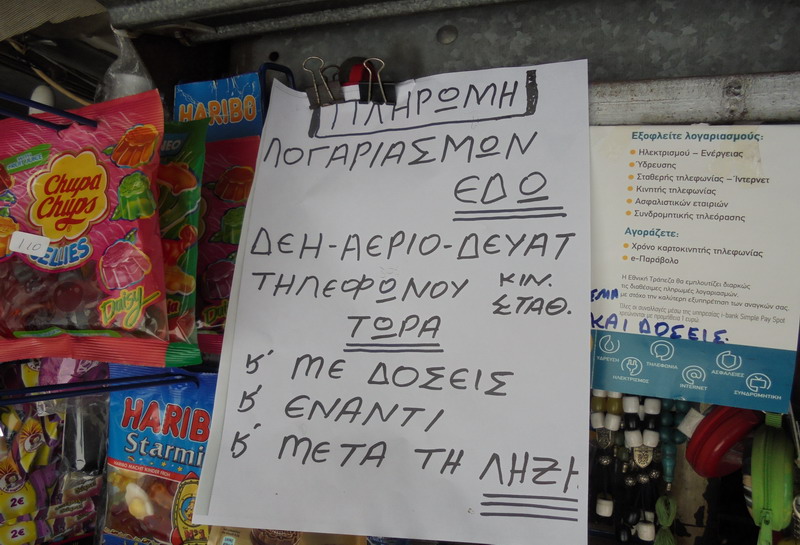 ΠΛΗΡΩΜΗ
ΛΟΓΑΡΙΑΣΜΩΝ
ΕΔΩ
ΔΕΗ-ΑΕΡΙΟ-ΔΕΥΑΤ
ΤΗΛΕΦΩΝΟΥ ΚΙΝ.
ΣΤΑΘ.
ΤΩΡΑ
Κ' ΜΕ ΔΟΣΕΙΣ
Κ' ΕΝΑΝΤΙ
Κ' ΜΕΤΑ ΤΗ ΛΗΞΗ
Εξοφλείτε λογαριασμούς:
• Ηλεκτρισμού – Ενέργειας
• Ύδρευσης
• Σταθερής τηλεφωνίας – Ίντερνετ
• Κινητής τηλεφωνίας
• Ασφαλιστικών εταιριών
• Συνδρομητικής τηλεόρασης
Αγοράζετε:
• Χρόνο καρτοκινητής τηλεφωνίας
• e-Παράβολο
Η Εθνική Τράπεζα θα εμπλουτίζει διαρκώς
τις διαθέσιμες πληρωμές λογαριασμών,
με στόχο την καλύτερη εξυπηρέτηση των αναγκών σας
Όλες οι συναλλαγές μέσω της υπηρεσίας i-bank Simple Pay Spot
ΚΑΙ ΔΟΣΕΙΣ
ΥΔΡΕΥΣΗ
ΗΛΕΚΤΡΙΣΜΟΣ
ΤΗΛΕΦΩΝΙΑ
INTERNET
ΑΣΦΑΛΕΙΕΣ
ΣΥΝΔΡΟΜΗΤΙΚΗ
HARIBO
Chupa
Chups
JELLIES
1.10
HARIB
Starmi
2€
2€